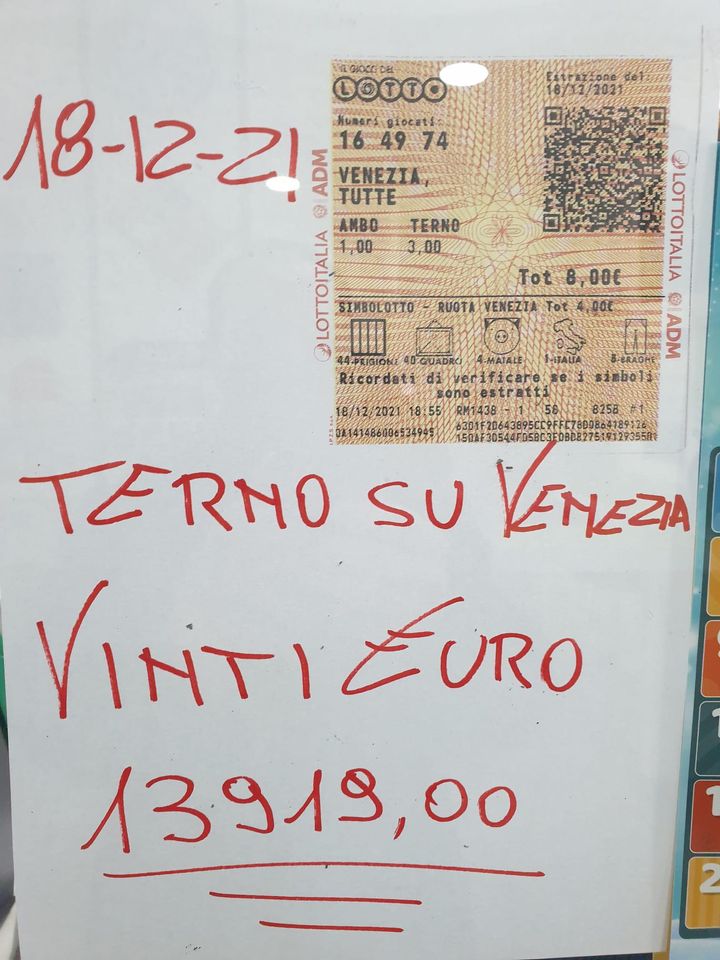 18-12-21
IL GIOCO DEL
LOTTO
Estrazione del:
18/12/2021
Numeri giocati:
16 49 74
VENEZIA,
TUTTE
AMBO TERNO
1,00 3,00
Tot 8,00€
SIMBOLOTTO - RUOTA VENEZIA Tot 4,00€
44-PRIGIONE 40-QUADRO 4-MAIALE 1-ITALIA 8-BRAGHE
Ricordati di verificare se i simboli
sono estratti
18/12/2021 18:55 RM1438 - 1 58 8258 #1
LOTTOITALIA ADM
LOTTOITALIA ADM
TERNO SU VENEZIA
VINTI EURO
13919,00